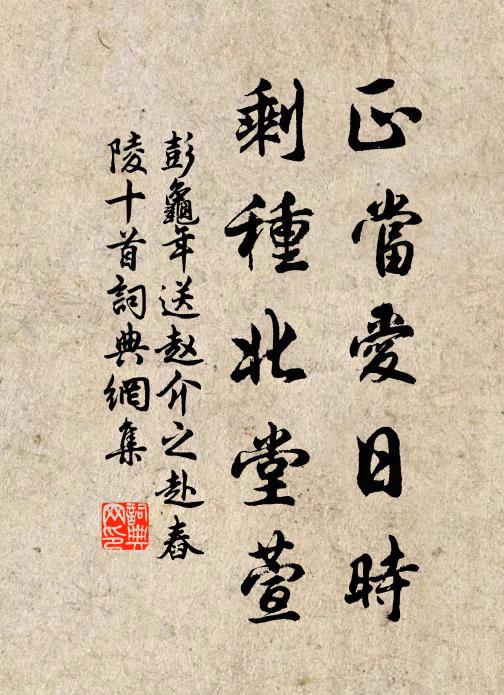 正當愛日時
剩種北堂萱
彭龜年送赵介之赴春
陵十首詞典網集
詞典
网印